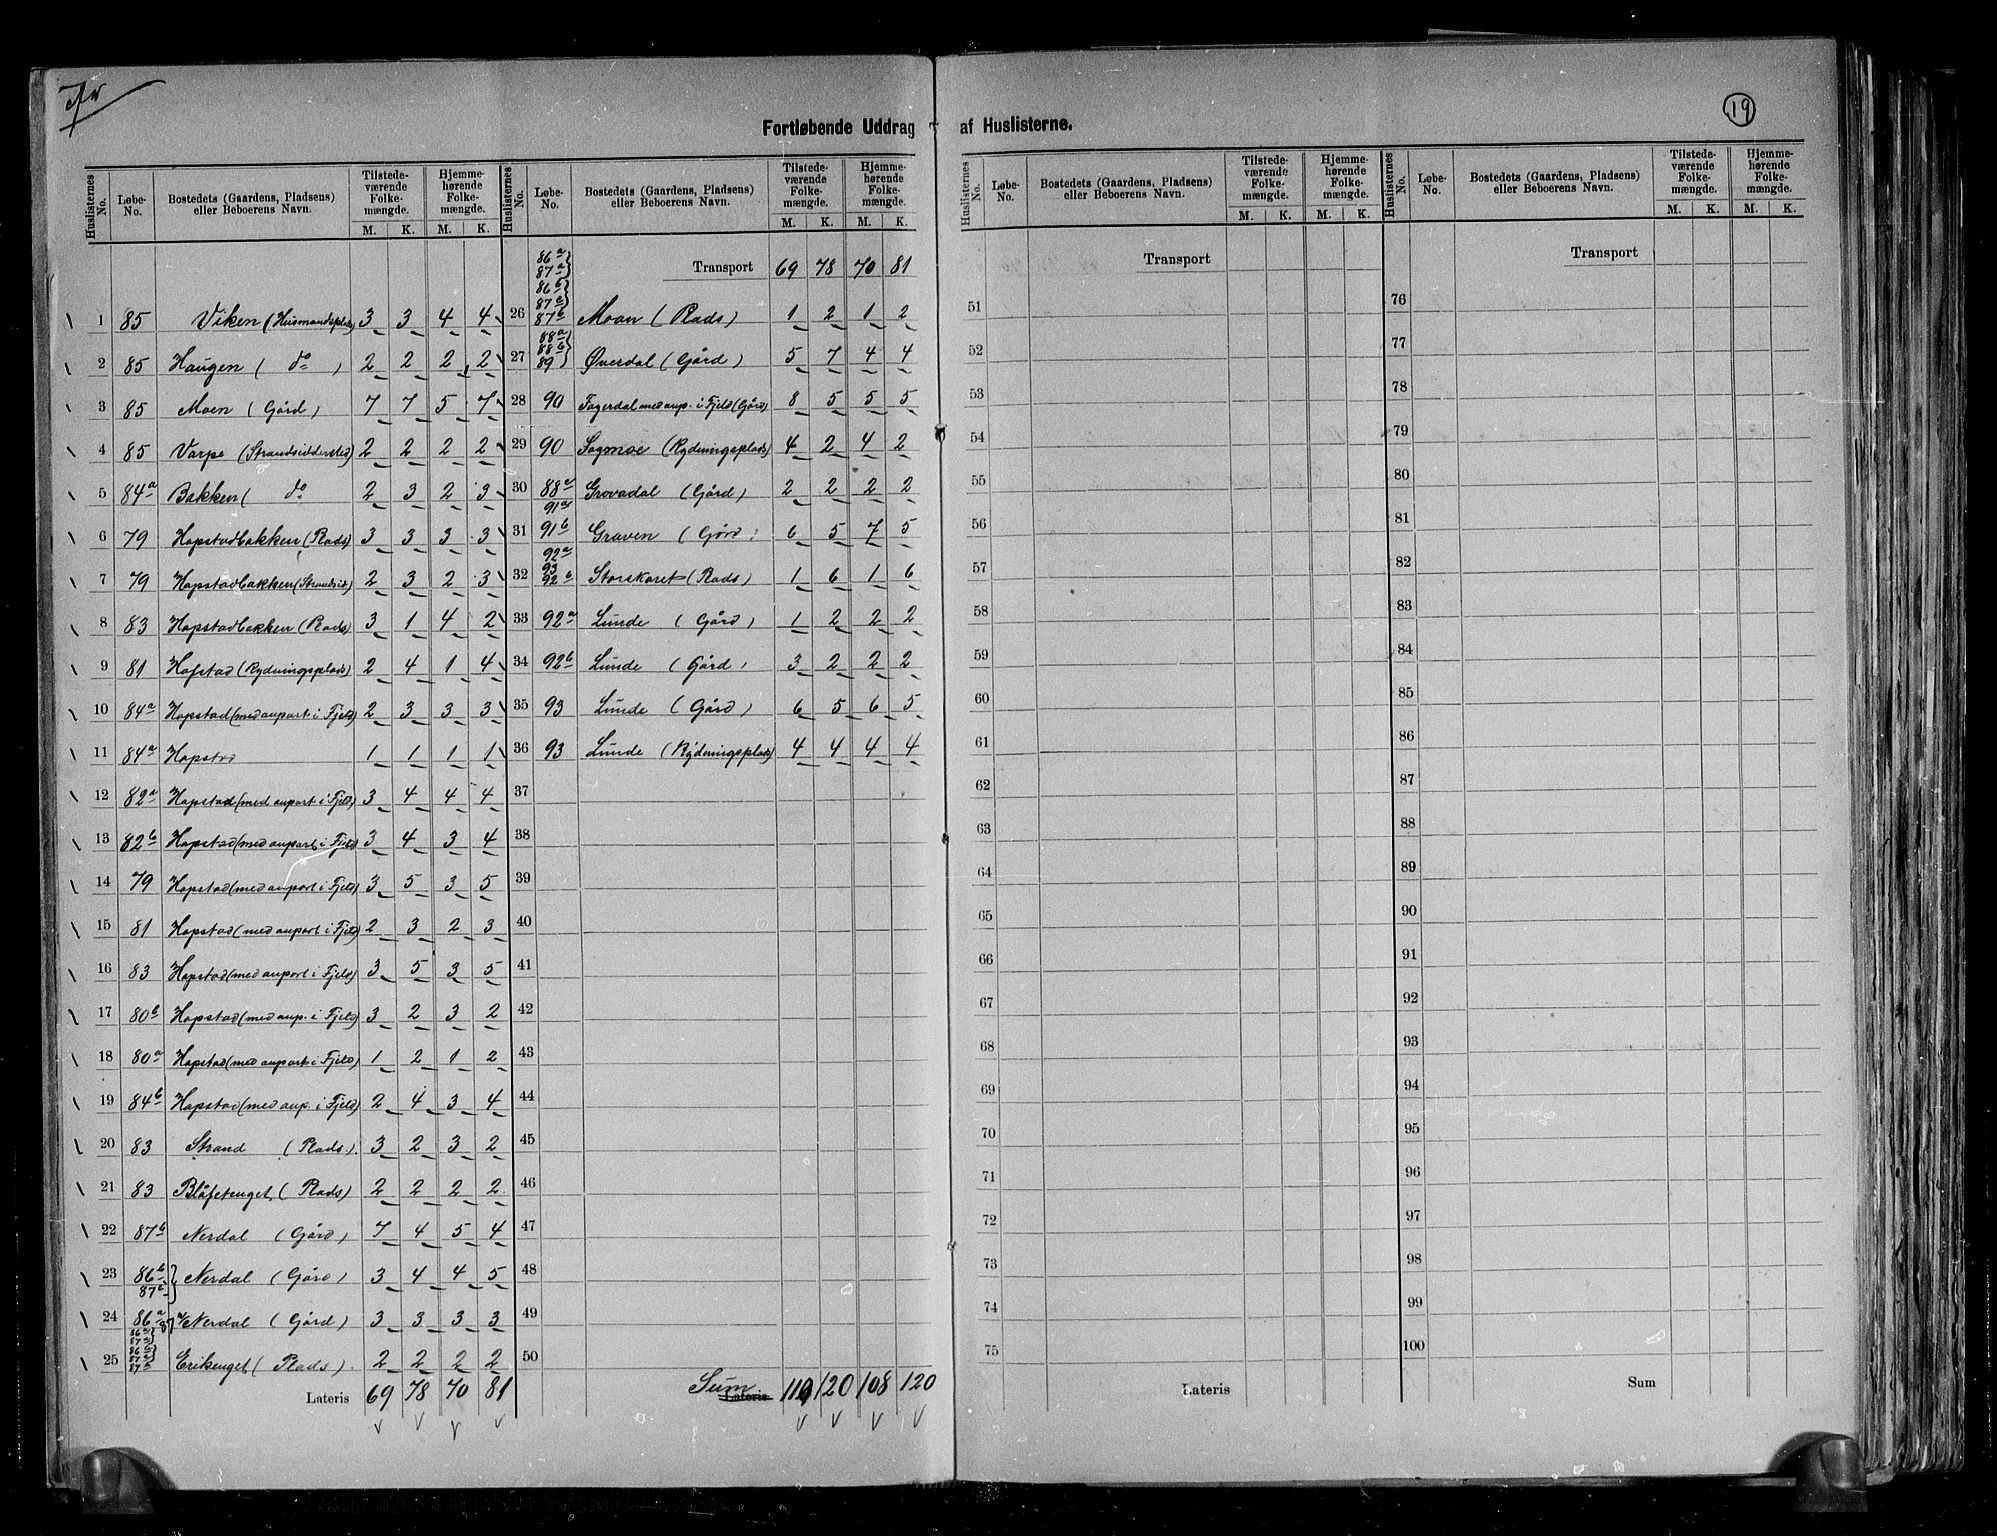 19
Fortløbende Uddrag af Huslisterne.
Huslisternes No. Løbe-No. Bostedets (Gaardens, Pladsens) eller Beboerens Navn. Tilstede-værende Folke-mængde. M. K. Hjemme-hørende Folke-mængde. M. K.
1 85 Viken (Husmandsplads) 3 3 4 4
2 85 Haugen ( do ) 2 2 2 2
3 85 Moen (Gård) 7 7 5 7
4 85 Varpe (Strandsiddersted) 2 2 2 2
5 84a Bakken ( do 2 3 2 3
6 79 Hopstadbakken (Plads) 3 3 3 3
7 79 Hopstadbakken (Strandsid) 2 3 2 3
8 83 Hopstadbakken (Plads) 3 1 4 2
9 81 Hofstad (Rydningsplads) 2 4 1 4
10 84a Hopstad (med anpart i Fjeld) 2 3 3 3
11 84a Hopstad 1 1 1 1
12 82a Hopstad (med anpart i Fjeld) 3 4 4 4
13 82b Hopstad (med anpart i Fjeld) 3 4 3 4
14 79 Hopstad (med anport i Fjeld) 3 5 3 5
15 81 Hopstad (med anport i Fjeld) 2 3 2 3
16 83 Hopstad (med anport i Fjeld) 3 5 3 5
17 80b Hopstad (med anp. i Fjeld) 3 2 3 2
18 80a Hopstad (med anpart i Fjeld) 1 2 1 2
19 84b Hopstad (med anp. i Fjeld) 2 4 3 4
20 83 Strand (Plads) 3 2 3 2
21 83 Blåfetenget (Plads) 2 2 2 2
22 87b Nerdal (Gård) 7 4 5 4
23 86b 87c } Nerdal (Gård) 3 4 4 5
24 86a 87a Nerdal (Gård) 3 3 3 3
25 86a 87a 86b Eriksenget (Plads) 2 2 2 2
Lateris 69 78 70 81
Huslisternes No. Løbe-No. Bostedets (Gaardens, Pladsens) eller Beboerens Navn. Tilstede-værende Folke-mængde. M. K. Hjemme-hørende Folke-mængde. M. K.
Transport 69 78 70 81
26 86a 87a 86b 87c 87b Moan (Plads) 1 2 1 2
27 88a 88b 89 Øverdal (Gård) 5 7 4 4
28 90 Fagerdal med anp. i Fjeld (Gård) 8 5 5 5
29 90 Sagmoe (Rydningsplads) 4 2 4 2
30 88a 91a Grovadal (Gård) 2 2 2 2
31 91b Graven (Gård) 6 5 7 5
32 92a 93 92b Storskaret (Plads) 1 6 1 6
33 92a Lunde (Gård) 1 2 2 2
34 92b Lunde (Gård) 3 2 2 2
35 93 Lunde (Gård) 6 5 6 5
36 93 Lunde (Rydningsplads) 4 4 4 4
37
38
39
40
41
42
43
44
45
46
47
48
49
50
Sum Lateris 110 120 108 120
Huslisternes No. Løbe-No. Bostedets (Gaardens, Pladsens) eller Beboerens Navn. Tilstede-værende Folke-mængde. M. K. Hjemme-hørende Folke-mængde. M. K.
Transport
51
52
53
54
55
56
57
58
59
60
61
62
63
64
65
66
67
68
69
70
71
72
73
74
75
Lateris
Huslisternes No. Løbe-No. Bostedets (Gaardens, Pladsens) eller Beboerens Navn. Tilstede-værende Folke-mængde. M. K. Hjemme-hørende Folke-mængde. M. K.
Transport
76
77
78
79
80
81
82
83
84
85
86
87
88
89
90
91
92
93
94
95
96
97
98
99
100
Sum